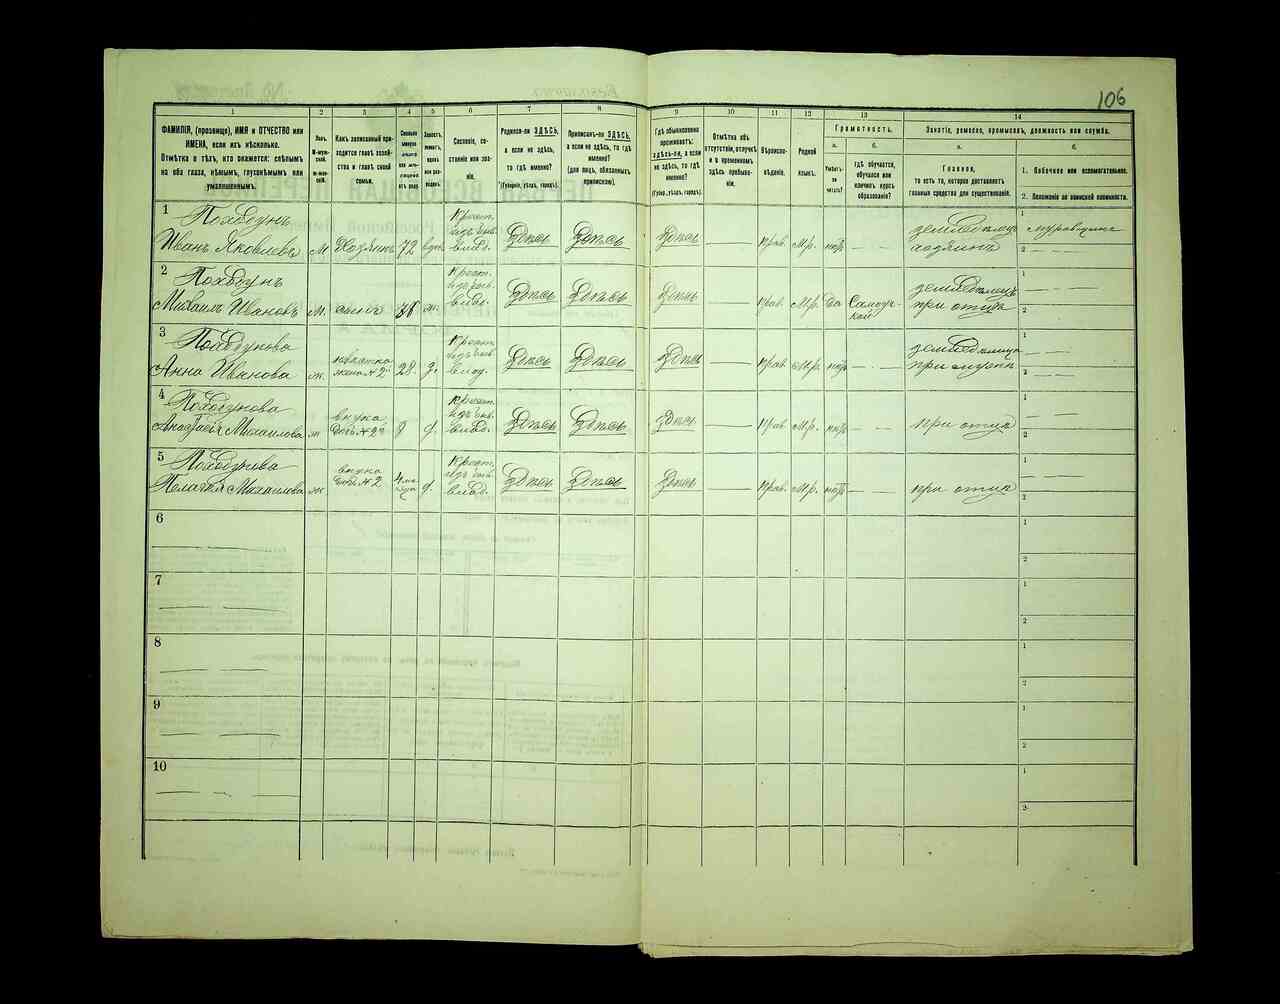 106
1
2
3
4
5
6
7
8
9
10
11
12
13
14
ФАМИЛІЯ, (прозвище), ИМЯ и ОТЧЕСТВО или
ИМЕНА, если ихъ нѣсколько.
Отмѣтка о тѣхъ, кто окажется: слѣпымъ
на оба глаза, нѣмымъ, глухонѣмымъ или
умалишеннымъ.
Полъ.
М-мужской.
Ж-женскій.
Какъ записанный приходится
главѣ хозяйства
и главѣ своей
семьи.
Сословіе, состояніе
или званіе.
Родился-ли ЗДѢСЬ,
а если не здѣсь,
то гдѣ именно?
(Губернія, уѣздъ, городъ).
Приписанъ-ли ЗДѢСЬ,
а если не здѣсь, то гдѣ
именно?
(для лицъ, обязанныхъ
припискою).
Гдѣ обыкновенно
проживаетъ:
здѣсь-ли, а если
не здѣсь, то гдѣ
именно?
(Губер., уѣздъ, городъ).
Отмѣтка объ
отсутствіи, отлучкѣ
и о временномъ
здѣсь пребываніи.
Вѣроисповѣданіе.
Родной
языкъ.
Грамотность.
а.
б.
Умѣетъ-ли
читать?
Гдѣ обучается,
обучался или
кончилъ курсъ
образованія?
Занятіе, ремесло, промыселъ, должность или служба.
а.
б.
Главное,
то есть то, которое доставляетъ
главныя средства для существованія.
1. Побочное или вспомогательное.
2. Положеніе по воинской повинности.
1
Походунъ
Иванъ Яковлевъ М Хозяинъ 72 вдов. Крест. Здѣсь Здѣсь Здѣсь Прав. М.р. нѣтъ земледѣлецъ хозяинъ
2
Походунъ
Михаилъ Ивановъ М. сынъ 36 ж. Крест. Здѣсь Здѣсь Здѣсь Прав. М.р. да Самоучкой земледѣлецъ при отцѣ
3
Походунова
Анна Иванова ж. невѣстка жена №2 28. з. Крест. Здѣсь Здѣсь Здѣсь Прав. М.р. нѣтъ при мужѣ
4
Походунова
Анастасія Михаилова ж внука дочь №2 8 д. Крест. Здѣсь Здѣсь Здѣсь Прав. М.р. нѣтъ при отцѣ
5
Походунова
Пелагія Михаилова ж внука дочь №2 4 д. Крест. Здѣсь Здѣсь Здѣсь Прав. М.р. нѣтъ при отцѣ
6
7
8
9
10